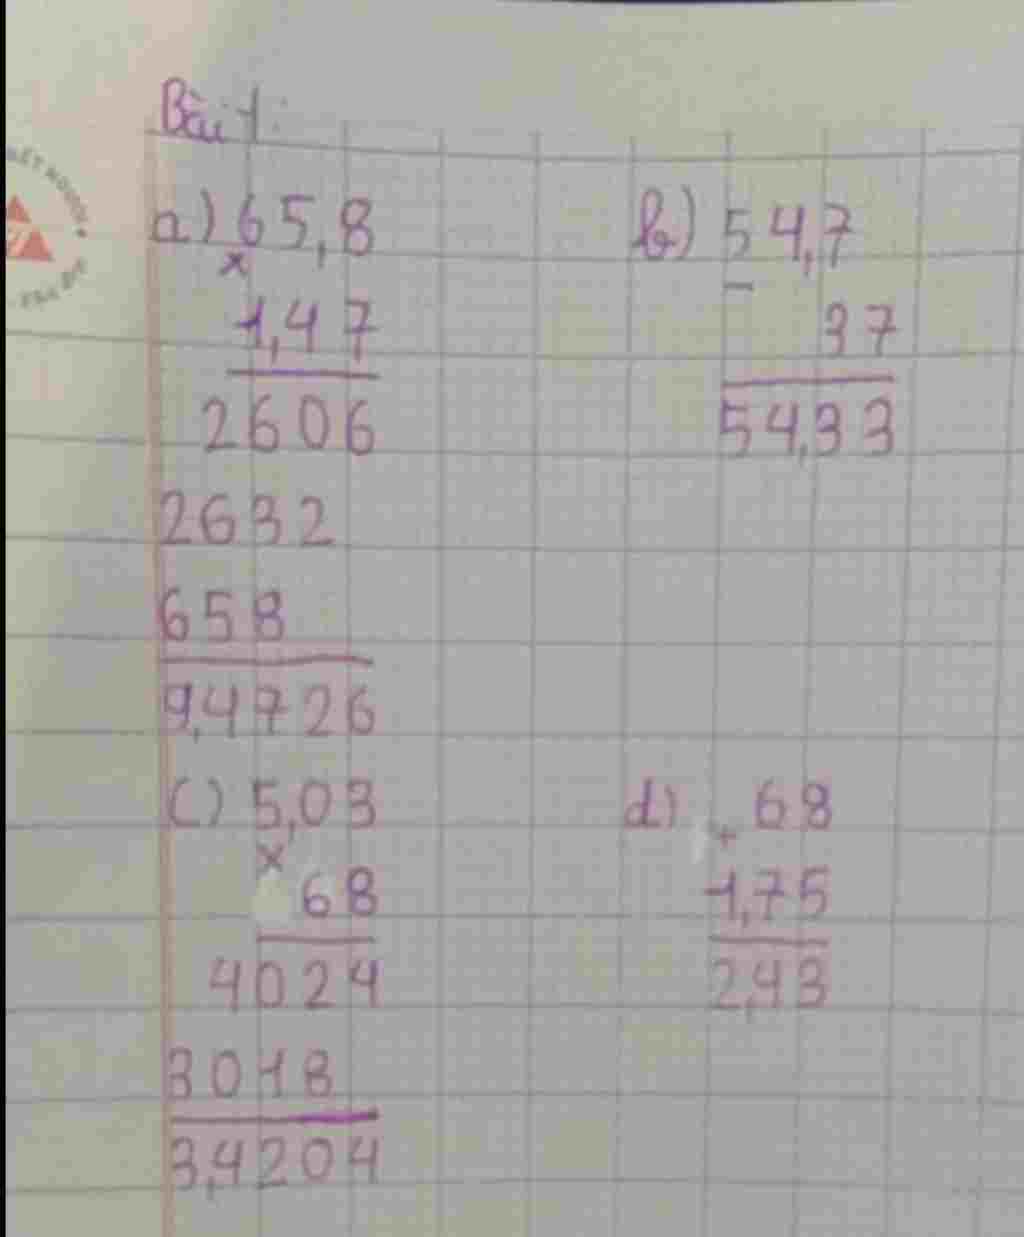 Bài 1:
a) 65,8
×
1,47
2606
2632
658
9,4726
b) 54,7
-
37
54,33
c) 5,03
×
68
4024
3018
3,4204
d) 68
+
1,75
2,43